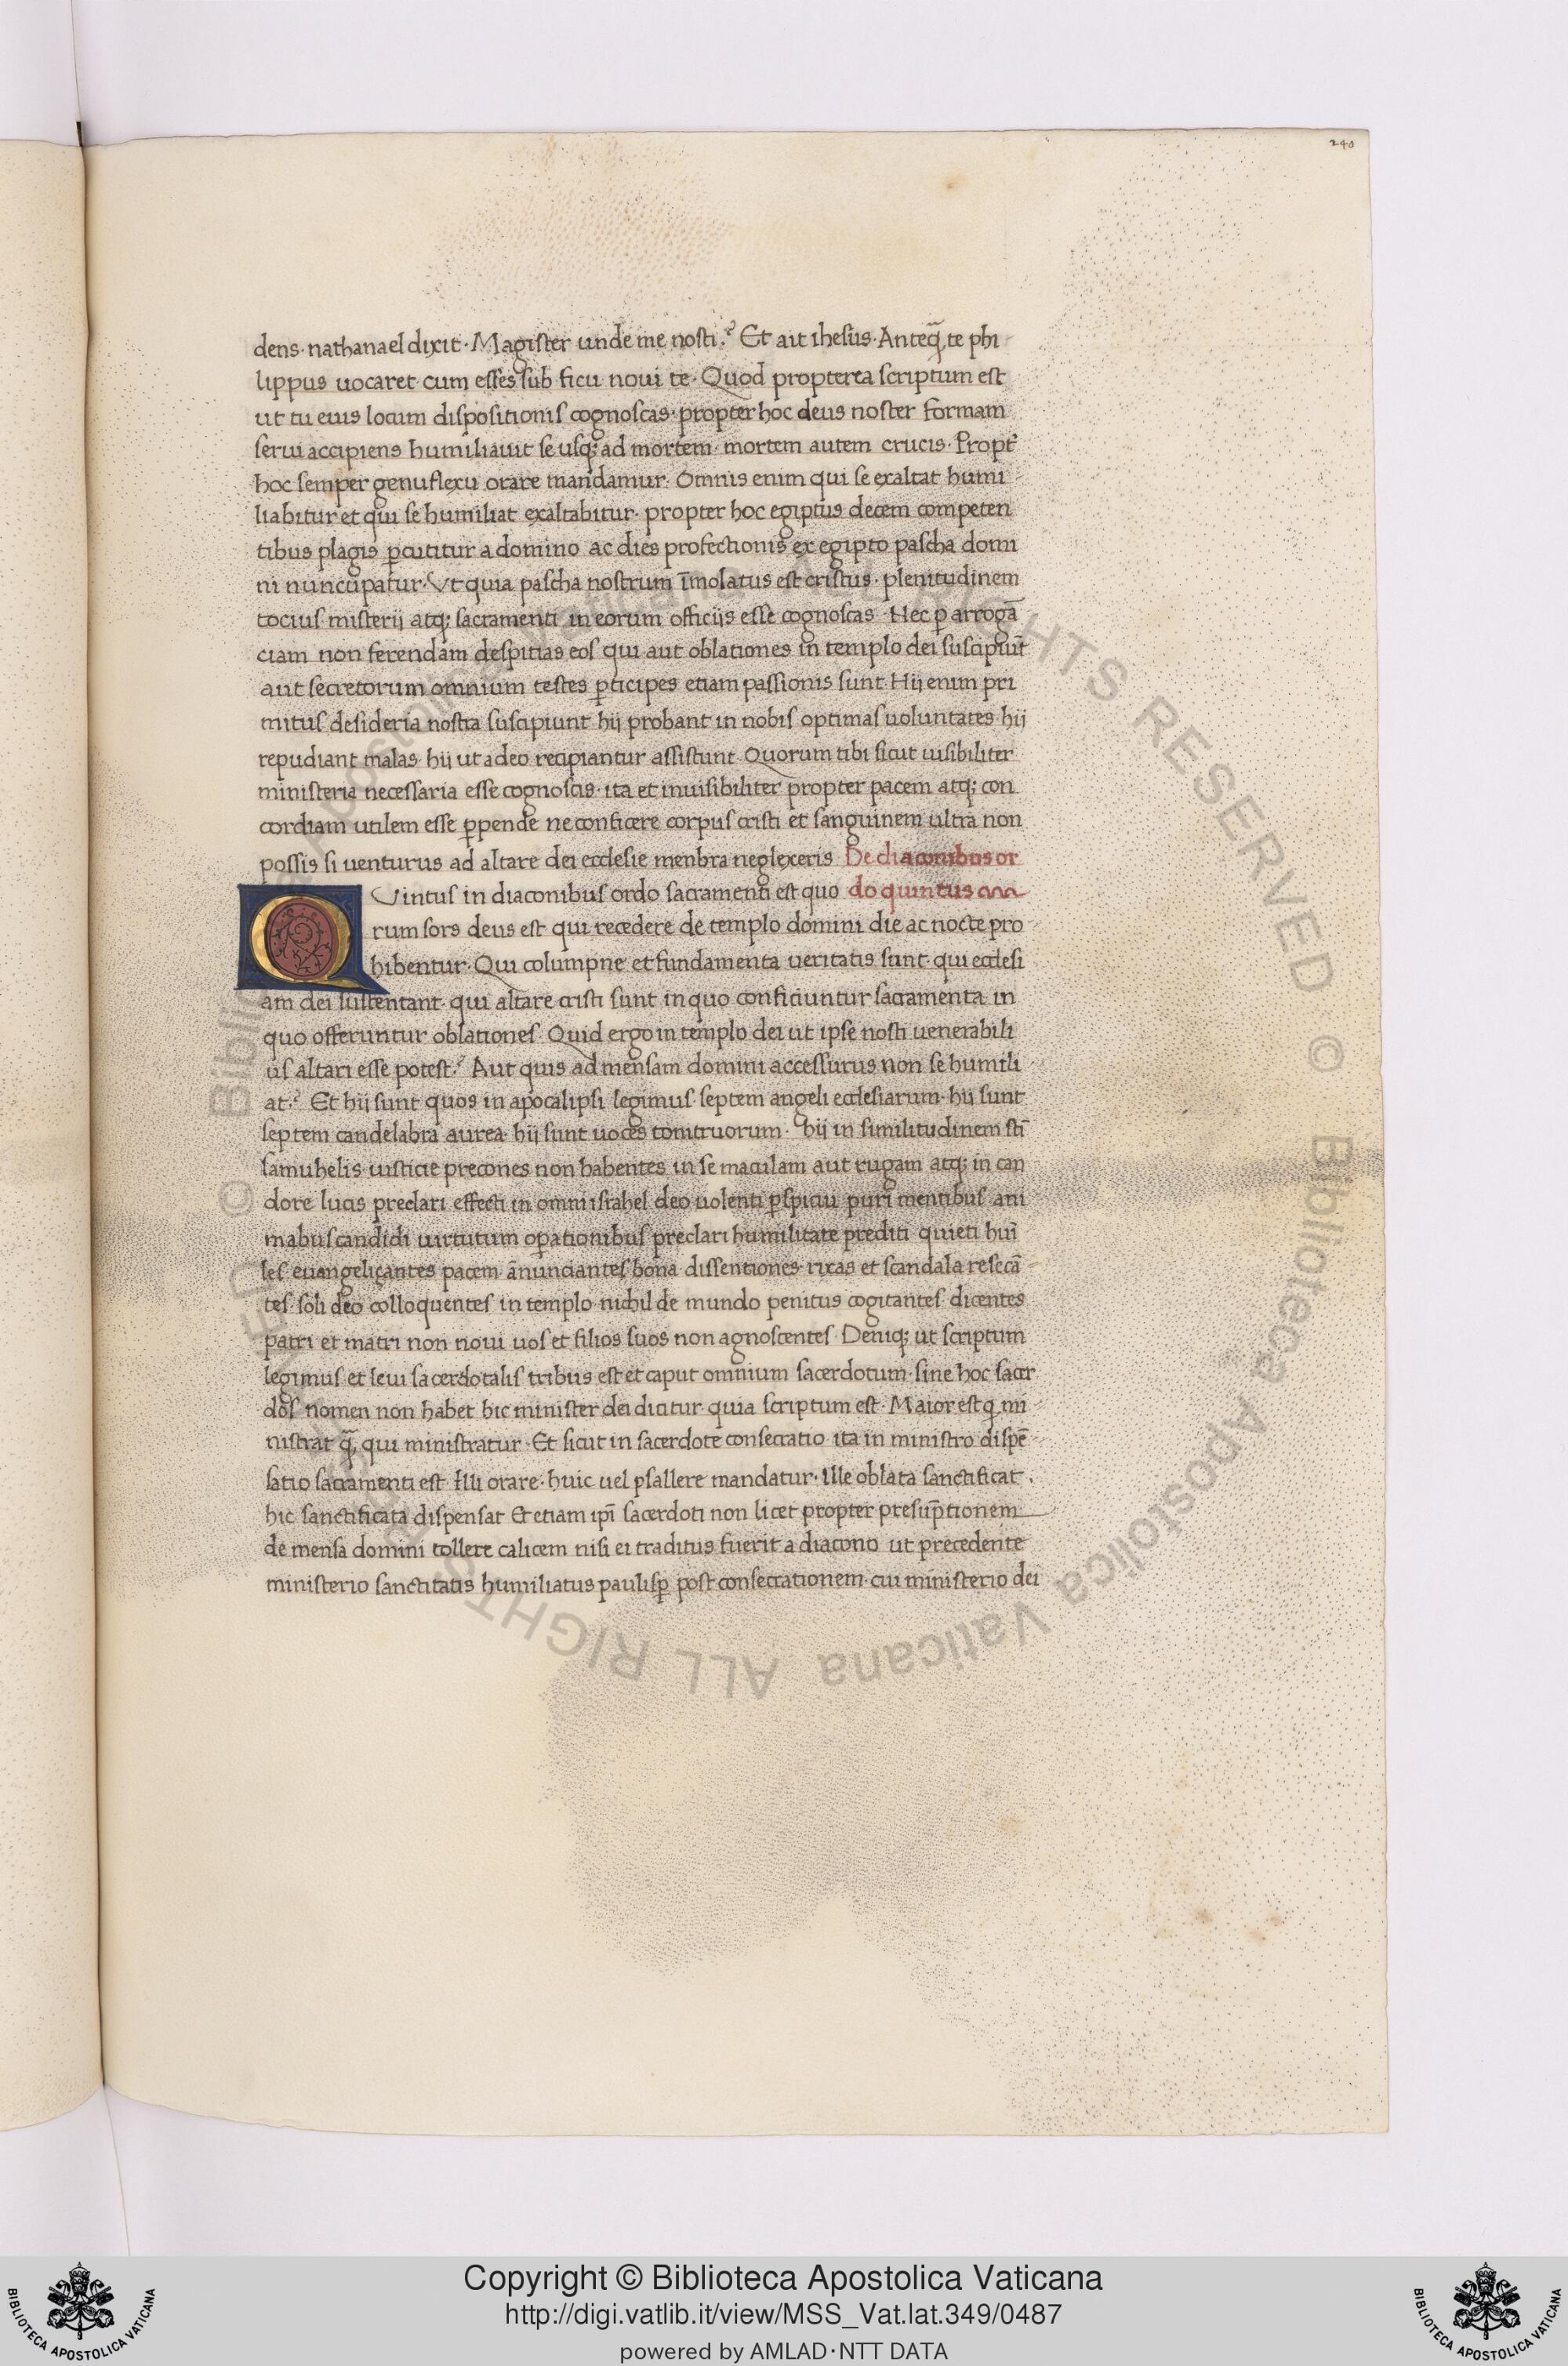 240
dens· nathanael dixit· Magister unde me nosti? Et ait ihesus· Anteq̃ te phi-
lippus uocaret cum esses sub ficu noui te· Quod propterea scriptum est
ut tu eius locum dispositionis cognoscas· propter hoc deus noster formam
serui accipiens humiliauit se usq; ad mortem· mortem autem crucis· Propt̾
hoc semper genuflexu orare mandamur· Omnis enim qui se exaltat humi-
liabitur et qui se humiliat exaltabitur· propter hoc egiptus decem competen
tibus plagis ꝑcutitur a domino ac dies profectionis ex egipto pascha domi
ni nuncupatur· Vt quia pascha nostrum īmolatus est cristus· plenitudinem
tocius misterij atq; sacramenti in eorum officijs esse cognoscas· Nec ꝑ arrogã
ciam non ferendam despitias eos qui aut oblationes in templo dei suscipiũt
aut secretorum omnium testes ꝑticipes etiam passionis sunt· Hij enim pri
mitus desideria nostra suscipiunt hij probant in nobis optimas uoluntates· hij
repudiant malas· hij ut a deo recipiantur assistunt· Quorum tibi sicut uisibiliter
ministeria necessaria esse cognoscis· ita et inuisibiliter propter pacem atq; con
cordiam utilem esse ꝑpende ne conficere corpus cristi et sanguinem ultra non
possis si uenturus ad altare dei ecclesie menbra neglexeris· De diaconibus or
QVintus in diaconibus ordo sacramenti est quo do quintus
rum sors deus est qui recedere de templo domini die ac nocte pro
hibentur· Qui columpne et fundamenta ueritatis sunt· qui ecclesi
am dei sustentant· qui altare cristi sunt in quo conficiuntur sacramenta in
quo offeruntur oblationes· Quid ergo in templo dei ut ipse nosti uenerabili
us altari esse potest? Aut quis ad mensam domini accessurus non se humili-
at? Et hij sunt quos in apocalipsi legimus septem angeli ecclesiarum· hij sunt
septem candelabra aurea· hij sunt uoces tonitruorum· hij in similitudinem scĩ
samuhelis iusticie precones non habentes in se maculam aut rugam atq; in can
dore lucis preclari effecti in omni israhel deo uolenti ꝑspicui puri mentibus ani
mabus candidi uirtutum oꝑationibus preclari humilitate prediti quieti hũi
les euangeliçantes pacem ãnunciantes bona dissentiones· rixas et scandala resecã-
tes· soli deo colloquentes in templo· nichil de mundo penitus cogitantes dicentes
patri et matri non noui uos et filios suos non agnoscentes· Deniq; ut scriptum
legimus et leui sacerdotalis tribus est et caput omnium sacerdotum· sine hoc sacer
dos nomen non habet hic minister dei dicitur quia scriptum est· Maior est q̇ mi-
nistrat q̃ qui ministratur· Et sicut in sacerdote consecratio ita in ministro dispẽ-
satio sacramenti est· Illi orare· huic uel psallere mandatur· Ille oblata sanctificat·
hic sanctificata dispensat Et etiam ipĩ sacerdoti non licet propter presũptionem
de mensa domini tollere calicem nisi ei traditus fuerit a diacono ut precedente
ministerio sanctitatis humiliatus paulisꝑ post consecrationem· cui ministerio dei
Copyright © Biblioteca Apostolica Vaticana
http://digi.vatlib.it/view/MSS_Vat.lat.349/0487
powered by AMLAD·NTT DATA
BIBLIOTECA APOSTOLICA VATICANA
BIBLIOTECA APOSTOLICA VATICANA